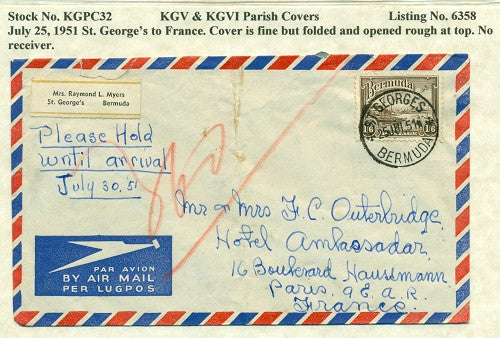 Stock No. KGPC32 KGV & KGVI Parish Covers Listing No. 6358
July 25, 1951 St. George's to France. Cover is fine but folded and opened rough at top. No
receiver.
Mrs. Raymond L. Myers
St. George's Bermuda
Bermuda
1/6 1/6
ST. GEORGES
25 JUL 51
BERMUDA
Please Hold
until arrival
July 30, 51
Mr & Mrs F. C. Outerbridge
Hotel Ambassador
16 Boulevard Haussmann
Paris 9E. A. R.
France
PAR AVION
BY AIR MAIL
PER LUGPOS